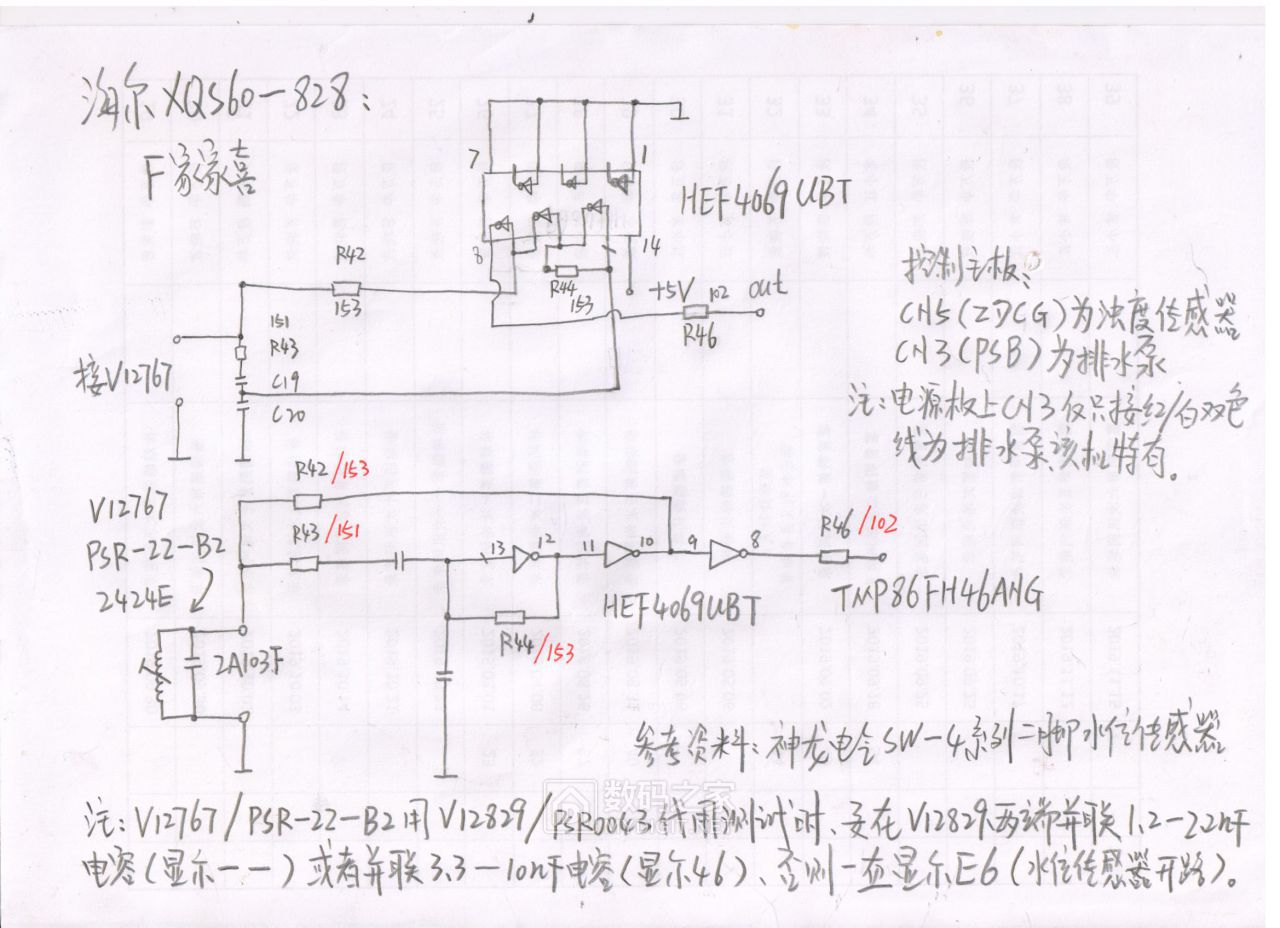 海尔XQS60-828:
F家家喜
7
1
HEF4069UBT
8
14
R42
153
R44
153
+5V
102
out
R46
151
R43
接V12767
C19
C20
控制主板:
CN5(ZDCG)为浊度传感器
CN3(PSB)为排水泵
注:电源板上CN3仅只接红/白双色
线为排水泵、该机特有。
V12767
PSR-22-B2
2424E
R42/153
R43/151
13
12
11
10
9
8
R46/102
HEF4069UBT
TMP86FH46ANG
R44/153
2A103F
参考资料:神龙电仝SW-4系列二脚水位传感器
数码之家
注:V12767/PSR-22-B2用V12829/PSR0043代用测试时、要在V12829两端并联1.2-2.2nF
电容(显示--)或者并联3.3-10nF电容(显示46)、否则一直显示E6(水位传感器开路)。